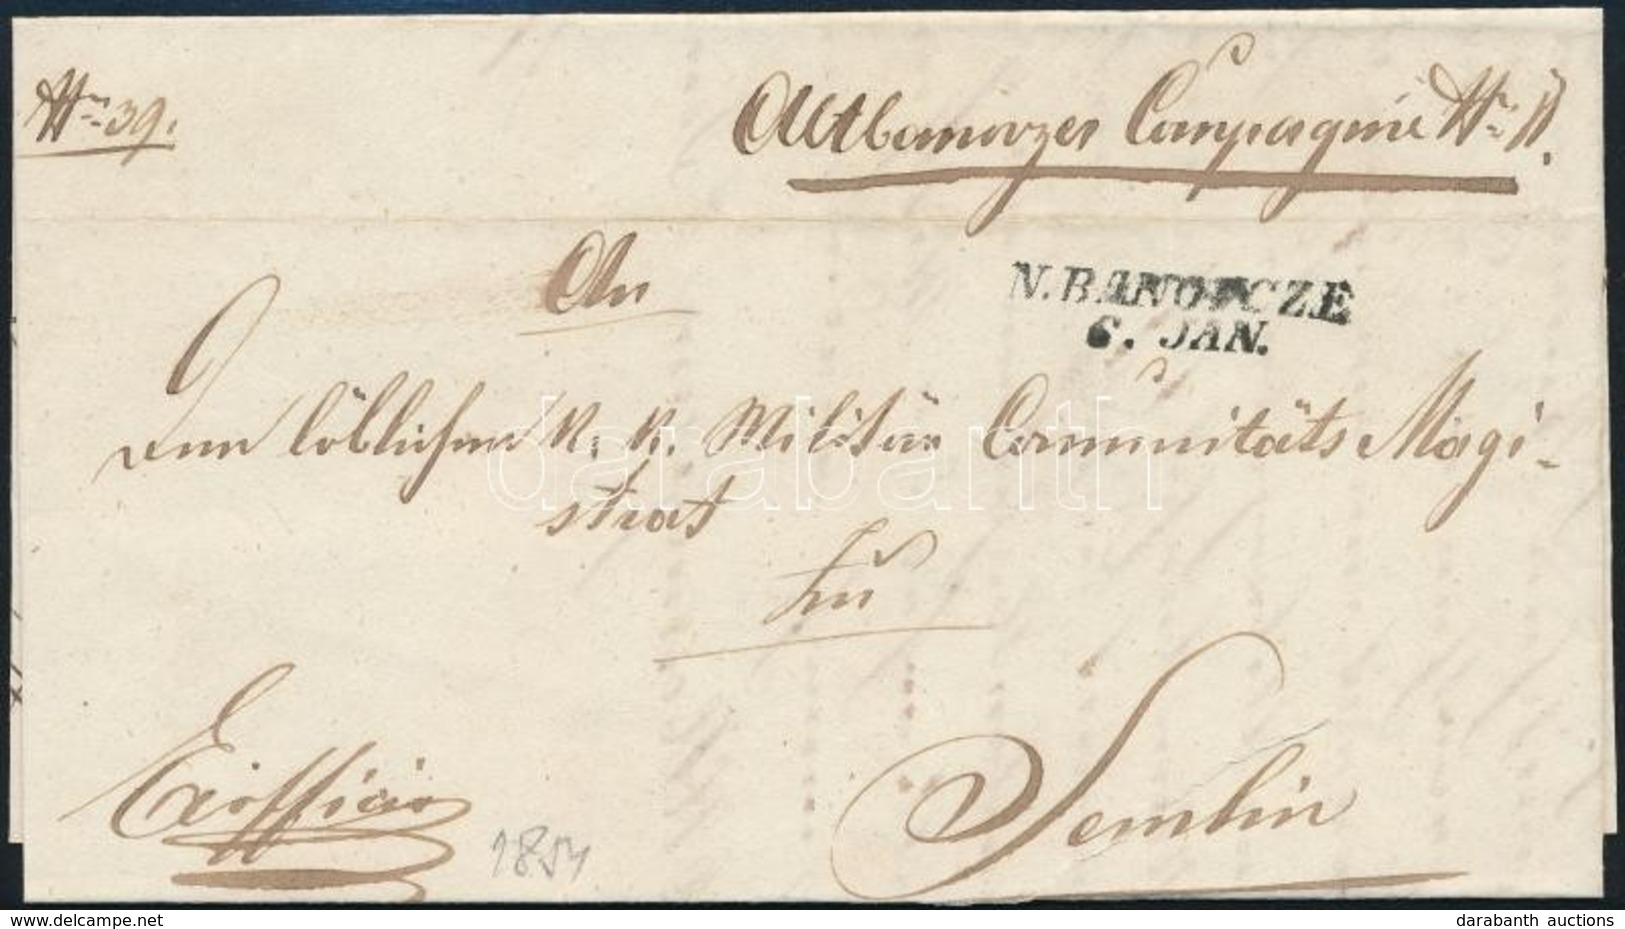 Nro 39.
Altbanovzer Compagnie Nr. 11.
N. BANOVCZE
6. JAN.
An
den löblichen K: K. Militär Communitäts Magi-
strat
zu
Exofficio
1854
Semlin
darabanth
www.delcampe.net
darabanth auctions